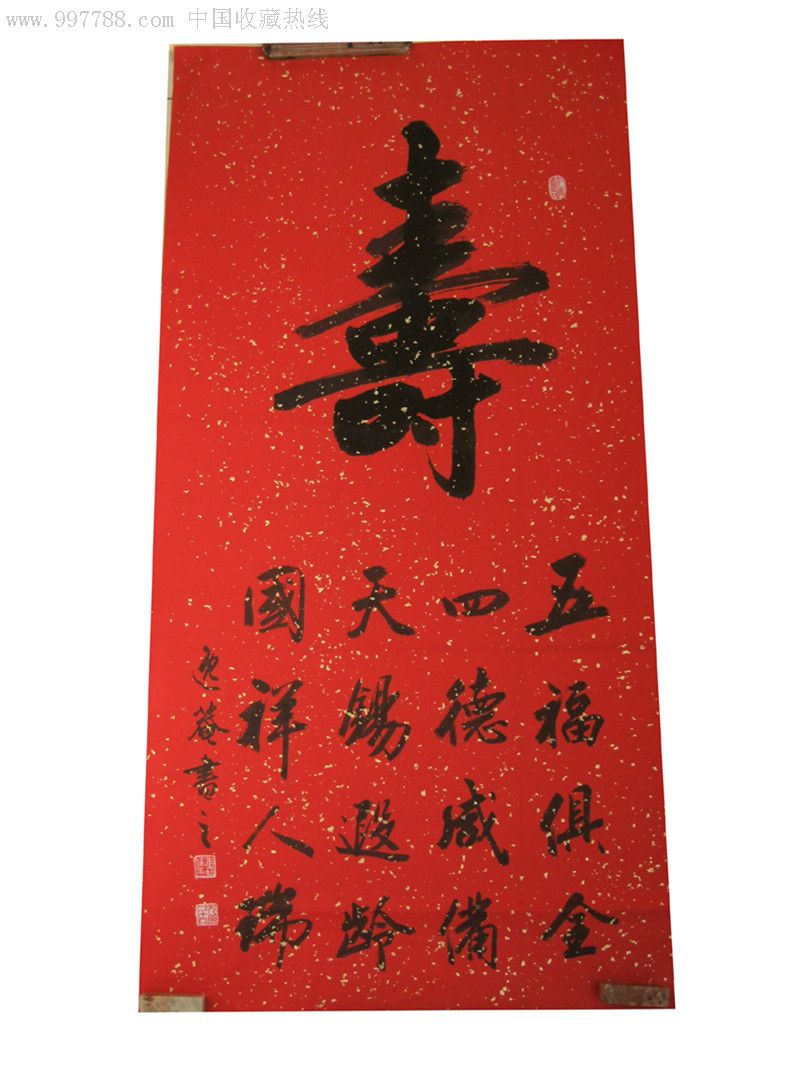 www.997788.com 中国收藏热线
壽
五福俱全
四德咸備
天錫遐齡
國祥人瑞
逸菴書之